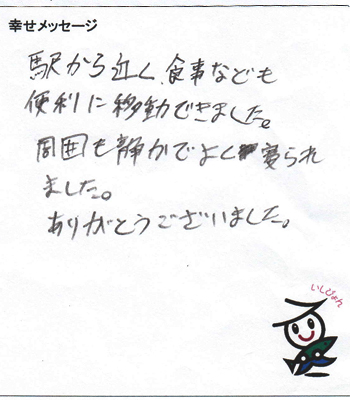 幸せメッセージ
駅から近く、食事なども
便利に移動できました。
周囲も静かでよく寝られ
ました。
ありがとうございました。
いしぴょん